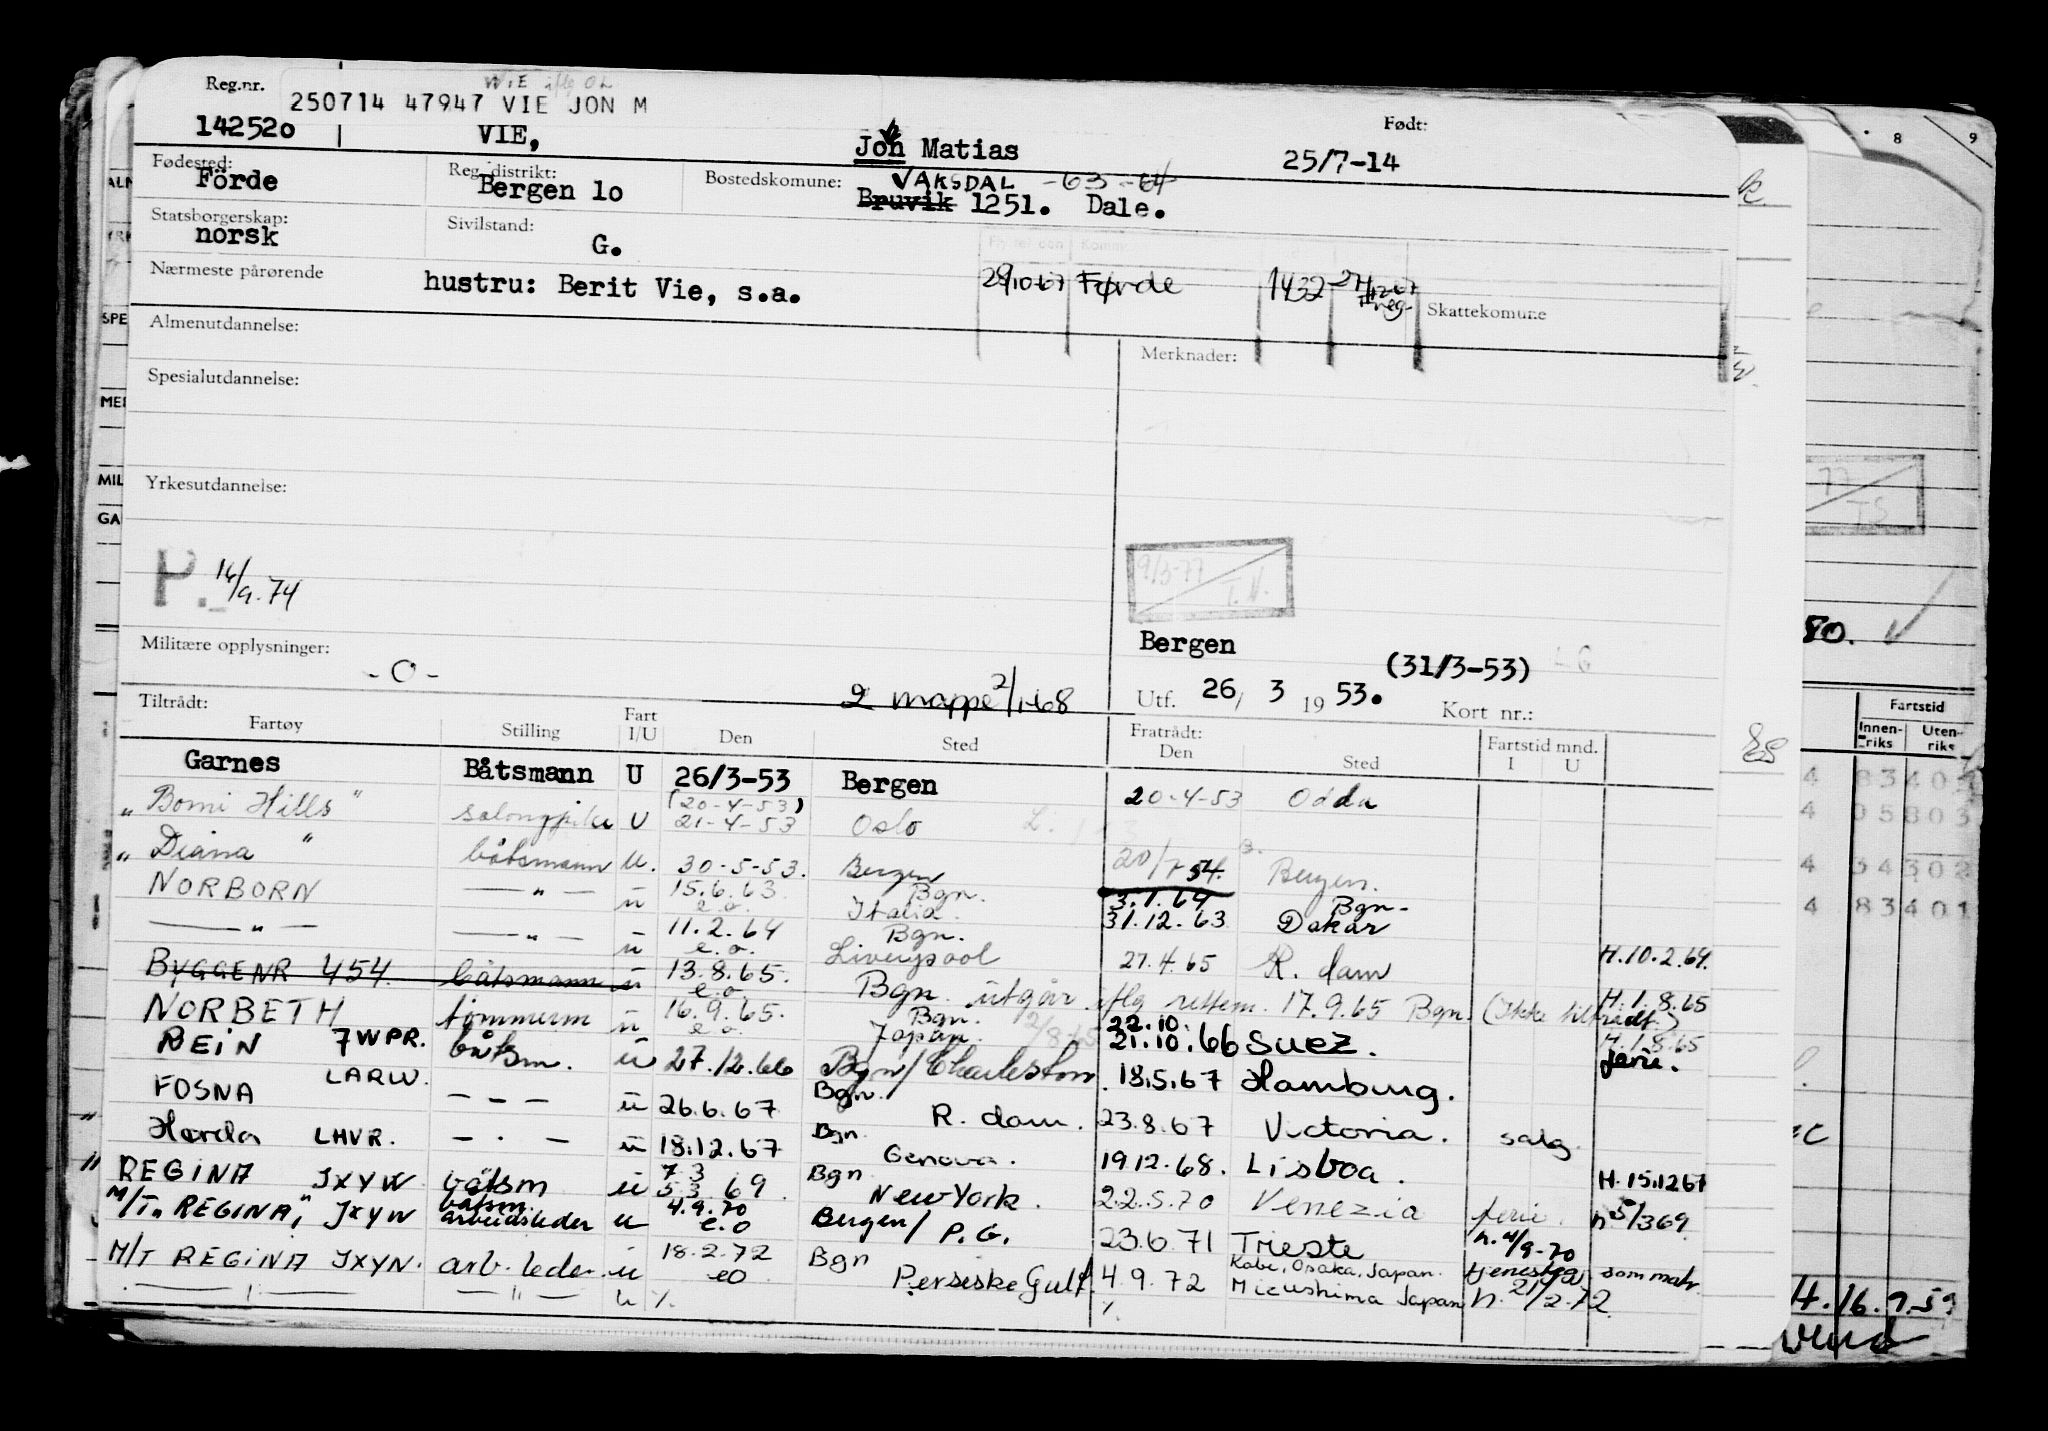 Reg.nr.
250714 47947 VIE JON M
142520 VIE, Jon Matias
Født: 25/7-14
Fødested: Förde
Reg. distrikt: Bergen 1o
Bostedskomune: VAKSDAL -63-64
Bruvik 1251. Dale.
Statsborgerskap: norsk
Sivilstand: G.
Nærmeste pårørende hustru: Berit Vie, s.a.
Førde 1432
Skattekomune
Almenutdannelse:
Merknader:
Spesialutdannelse:
Yrkesutdannelse:
P. 16/9.74
9/3-77 T.V.
Militære opplysninger: -0-
Bergen (31/3-53)
2 mappe 2/1-68
Utf. 26/ 3 1953. Kort nr.:
Tiltrådt: Fratrådt:
Fartøy Stilling Fart I/U Den Sted Den Sted Fartstid mnd. I U
Garnes Båtsmann U 26/3-53 Bergen 20-4-53 Odda
"Bomi Hills" U (20-4-53) 21-4-53 Oslo
"Diana" båtsmann u. 30-5-53. Bergen 54. Bergen.
NORBORN — " — u 15.6.63 e.o. Bgn. Italia. 3.1.64 31.12.63 Bgn- Dakar
— " — — " — u 11.2.64 e.o. Bgn. Liverpool 27.4.65 R. dam H.10.2.64.
BYGGENR 454. båtsmann u 13.8.65. e.o. Bgn. utgår iflg rettem. 17.9.65 Bgn. (Ikke tiltrådt.) H.1.8.65
NORBETH tømmerm u 16.9.65. e.o. Bgn. Japan. 22.10. 21.10.66 Suez. H.1.8.65 ferie.
REIN 7WPR. båtsm. u 27.12.66 Bgn/Charleston 18.5.67 Hamburg.
FOSNA LARW. — — — u 26.6.67 Bgn. R. dam. 23.8.67 Victoria. salg.
" Horda LHVR. — . — u 18.12.67 Bgn. Genova. 19.12.68. Lisboa. H.15.1267
" REGINA JXYW. båtsm u 7.3 5.3.69. Bgn New York. 22.5.70 Venezia ferie. h 5/369.
M/T "REGINA", JXYW båtsm. arbeidsleder u 4.9.70 e.o Bergen/ P.G. 23.6.71 Trieste h.4/9-70
M/T REGINA JXYN. arb. leder u 18.2.72 eo Bgn Persiske Gulf. 4.9.72 Kobe, Osaka, Japan. Mizushima Japan tjenesteg. som matr. h. 21/2-72
— " — — " — u %. %
Fartstid
Innen-riks Uten-riks
80.
H.16.9.59